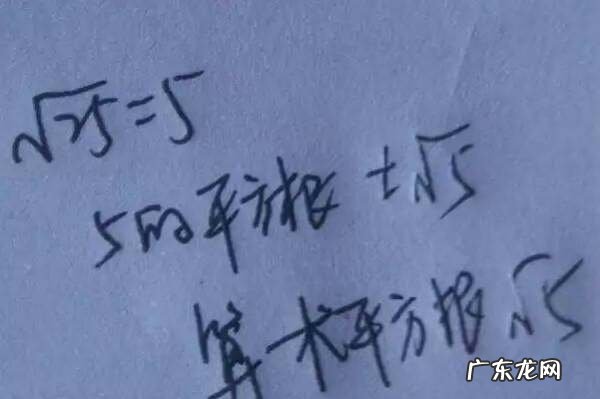 √25=5
5的平方根 ±√5
算术平方根 √5
广东龙网